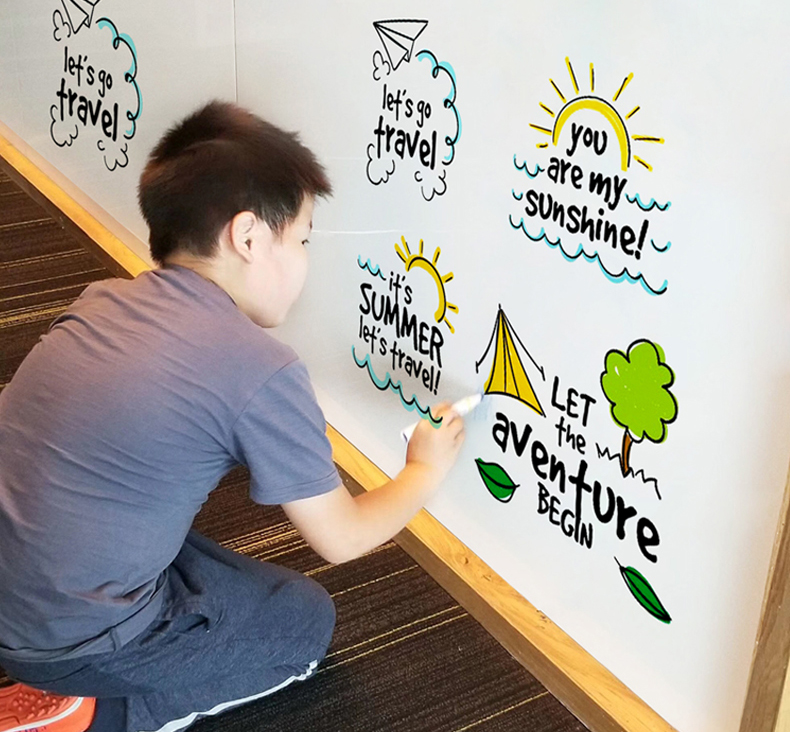 let's go
travel
let's go
travel
you
are my
sunshine!
it's
SUMMER
let's travel!
LET
the
aventure
BEGIN